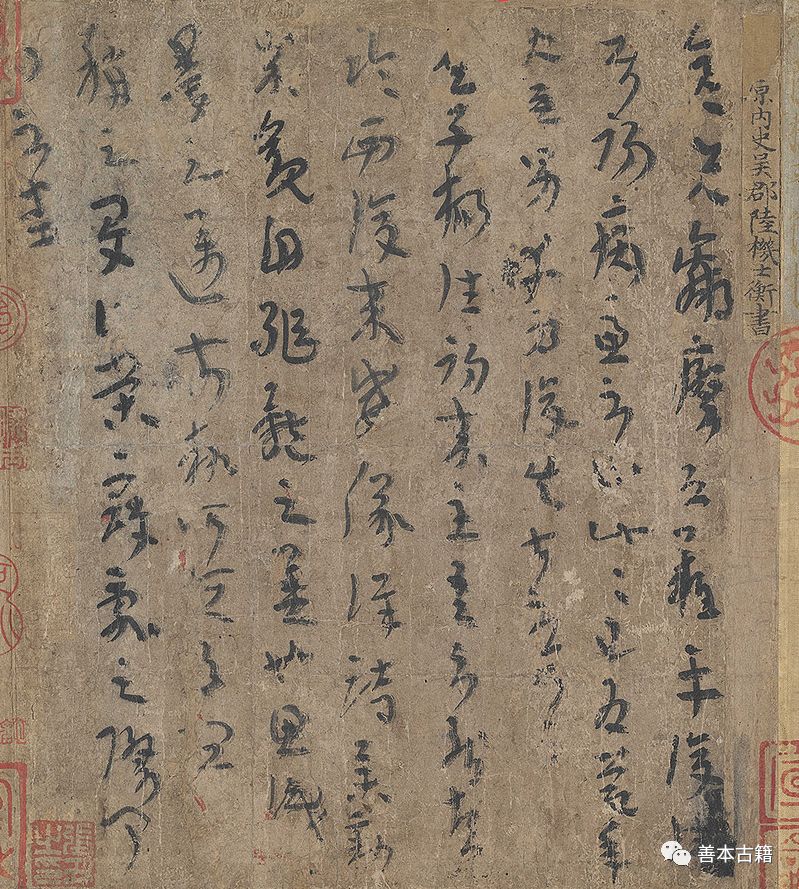 原内史吳郡陸機士衡書
彦先羸瘵恐難平復往屬
初病慮不止此此已為慶承
使唯男幸為復失前憂耳
吳子楊往初來主吾不能盡
臨西復來威儀詳跱舉動
成觀自軀體之美也思識
量之邁前執所恒有宜
稱之夏伯榮寇亂之際聞
問不悉
善本古籍